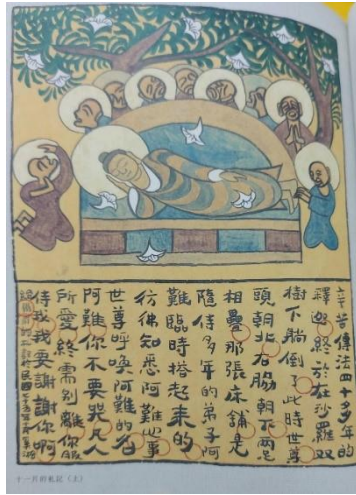 辛苦傳法四十多年的
釋迦終於在沙羅双
樹下躺倒。此時世尊
頭朝北右脇朝下兩足
相疊那張床舖是
隨侍多年的弟子阿
難臨時搭起來的
彷彿知悉阿難心事
世尊呼喚阿難的名
阿難你不要哭凡人
所愛終需別離你服
侍我我要謝謝你啊
十一月的札記(上)